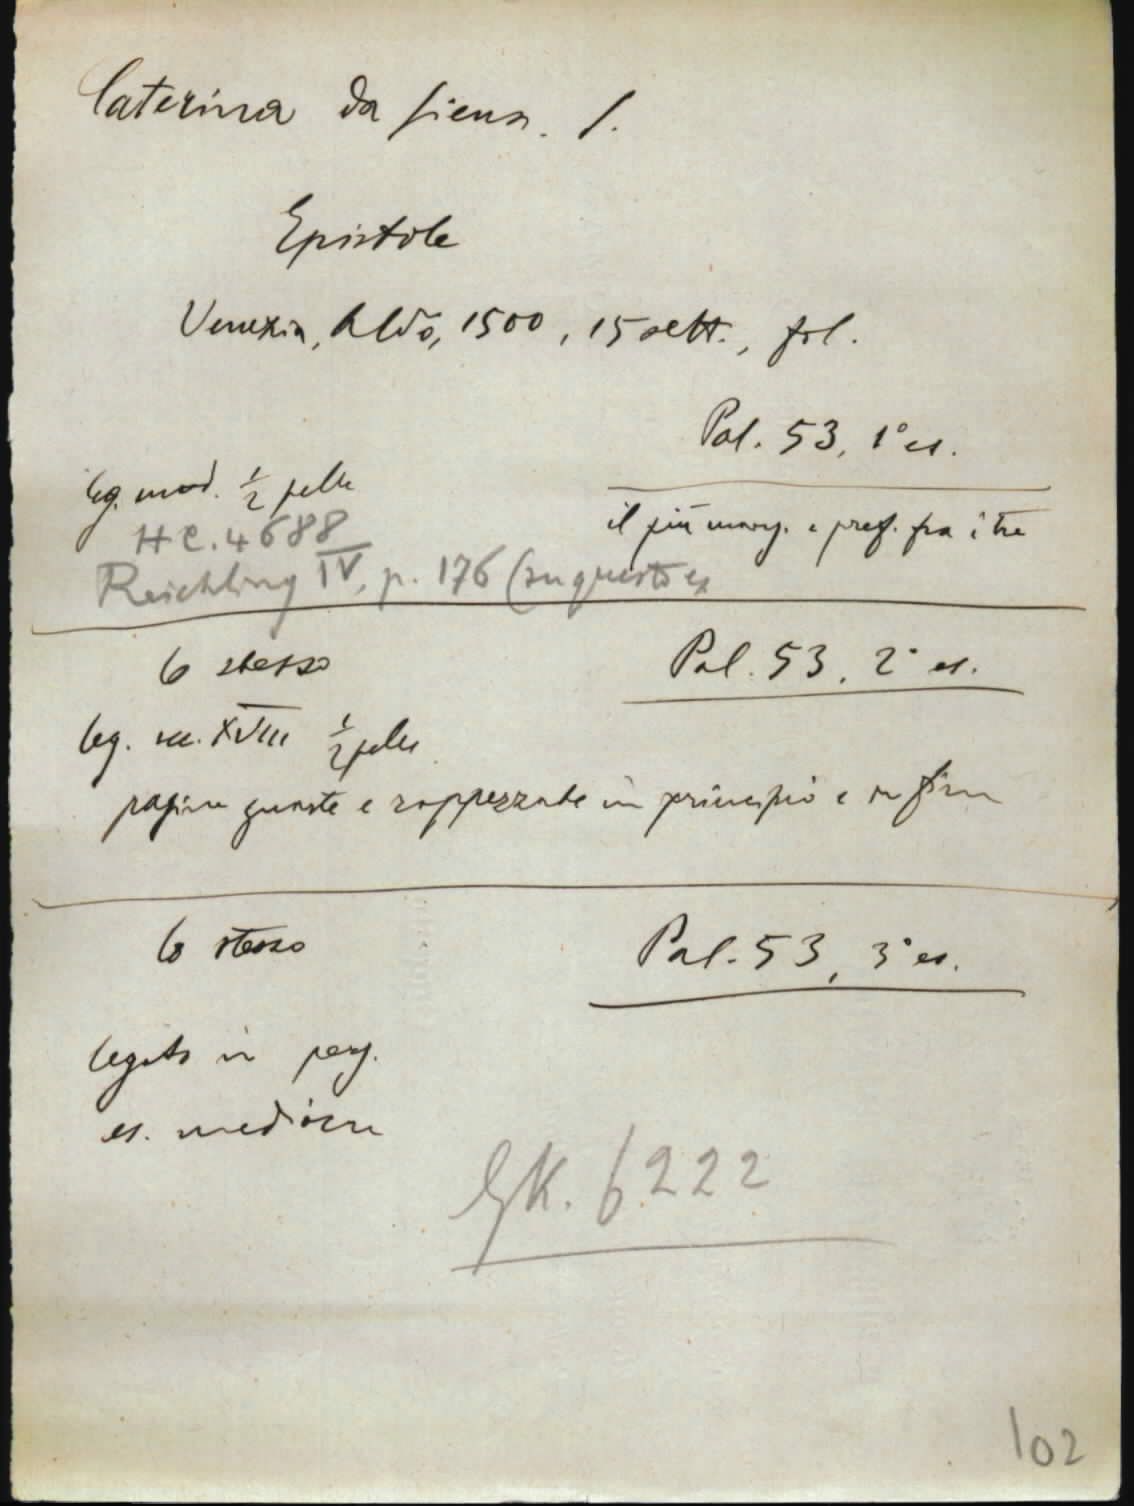 Caterina da Siena. S.
Epistole
Venezia, Aldo, 1500, 15 sett., fol.
Pal. 53, 1° es.
leg. mod. ½ pelle
il più marg. e preg. fra i tre
HC. 4688
Reichling IV, p. 176 (su questo es
lo stesso
Pal. 53, 2° es.
leg. sec. XVIII ½ pelle
pagine guaste e rappezzate in principio e in fine
lo stesso
Pal. 53, 3° es.
legato in perg.
es. mediocre
GK. 6222
102